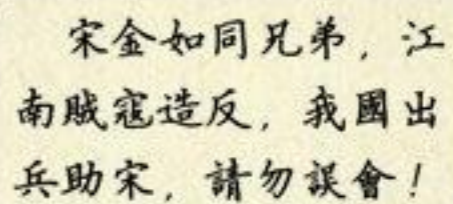 宋金如同兄弟，江
南賊寇造反，我國出
兵助宋，請勿誤會！